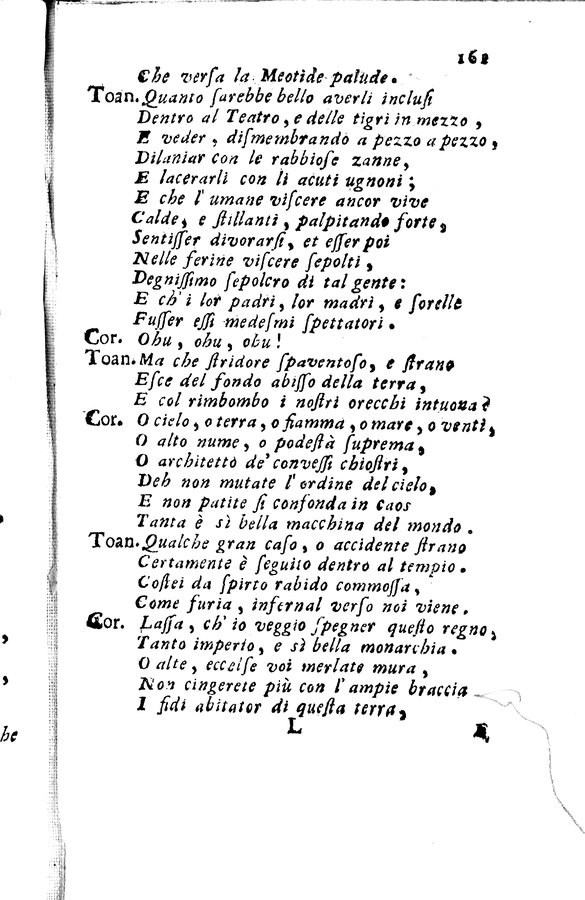 162
Che verſa la Meotide palude.
Toan. Quanto ſarebbe bello averli incluſi
Dentro al Teatro, e delle tigri in mezzo,
E veder, diſmembrando a pezzo a pezzo,
Dilaniar con le rabbioſe zanne,
E lacerarli con li acuti ugnoni;
E che l'umane viſcere ancor vive
Calde, e ſtillanti, palpitando forte,
Sentiſſer divorarſi, et eſſer poi
Nelle ferine viſcere ſepolti,
Degniſſimo ſepolcro di tal gente:
E ch'i lor padri, lor madri, e ſorelle
Fuſſer eſſi medeſmi ſpettatori.
Cor. Ohu, ohu, ohu!
Toan. Ma che ſtridore ſpaventoſo, e ſtrano
Eſce del fondo abiſſo della terra,
E col rimbombo i noſtri orecchi intuona?
Cor. O cielo, o terra, o fiamma, o mare, o venti,
O alto nume, o podeſtà ſuprema,
O architetto de' conveſſi chioſtri,
Deh non mutate l'ordine del cielo,
E non patite ſi confonda in caos
Tanta è sì bella macchina del mondo.
Toan. Qualche gran caſo, o accidente ſtrano
Certamente è ſeguito dentro al tempio.
Coſtei da ſpirto rabido commoſſa,
Come furia, infernal verſo noi viene.
Cor. Laſſa, ch'io veggio ſpegner queſto regno,
Tanto imperio, e sì bella monarchia.
O alte, eccelſe voi merlate mura,
Non cingerete più con l'ampie braccia
I fidi abitator di queſta terra,
L E,
,
,
he